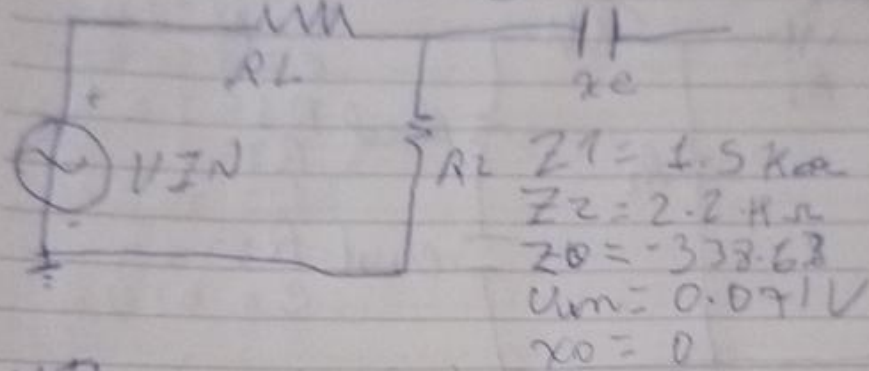 RL
xc
+
VIN
-
R2
Z1 = 1.5 KΩ
Z2 = 2.2 KΩ
ZΘ = -338.63
Vin = 0.071V
x0 = 0